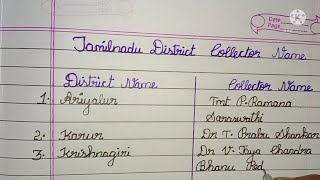 Date
Page
Tamilnadu District Collector Name
District Name Collector Name
1. Ariyalur Tmt P. Ramana
Saraswathi
2. Karur Dr T. Prabu Shankar
3. Krishnagiri Dr V. Jaya Chandra
Bhanu Red